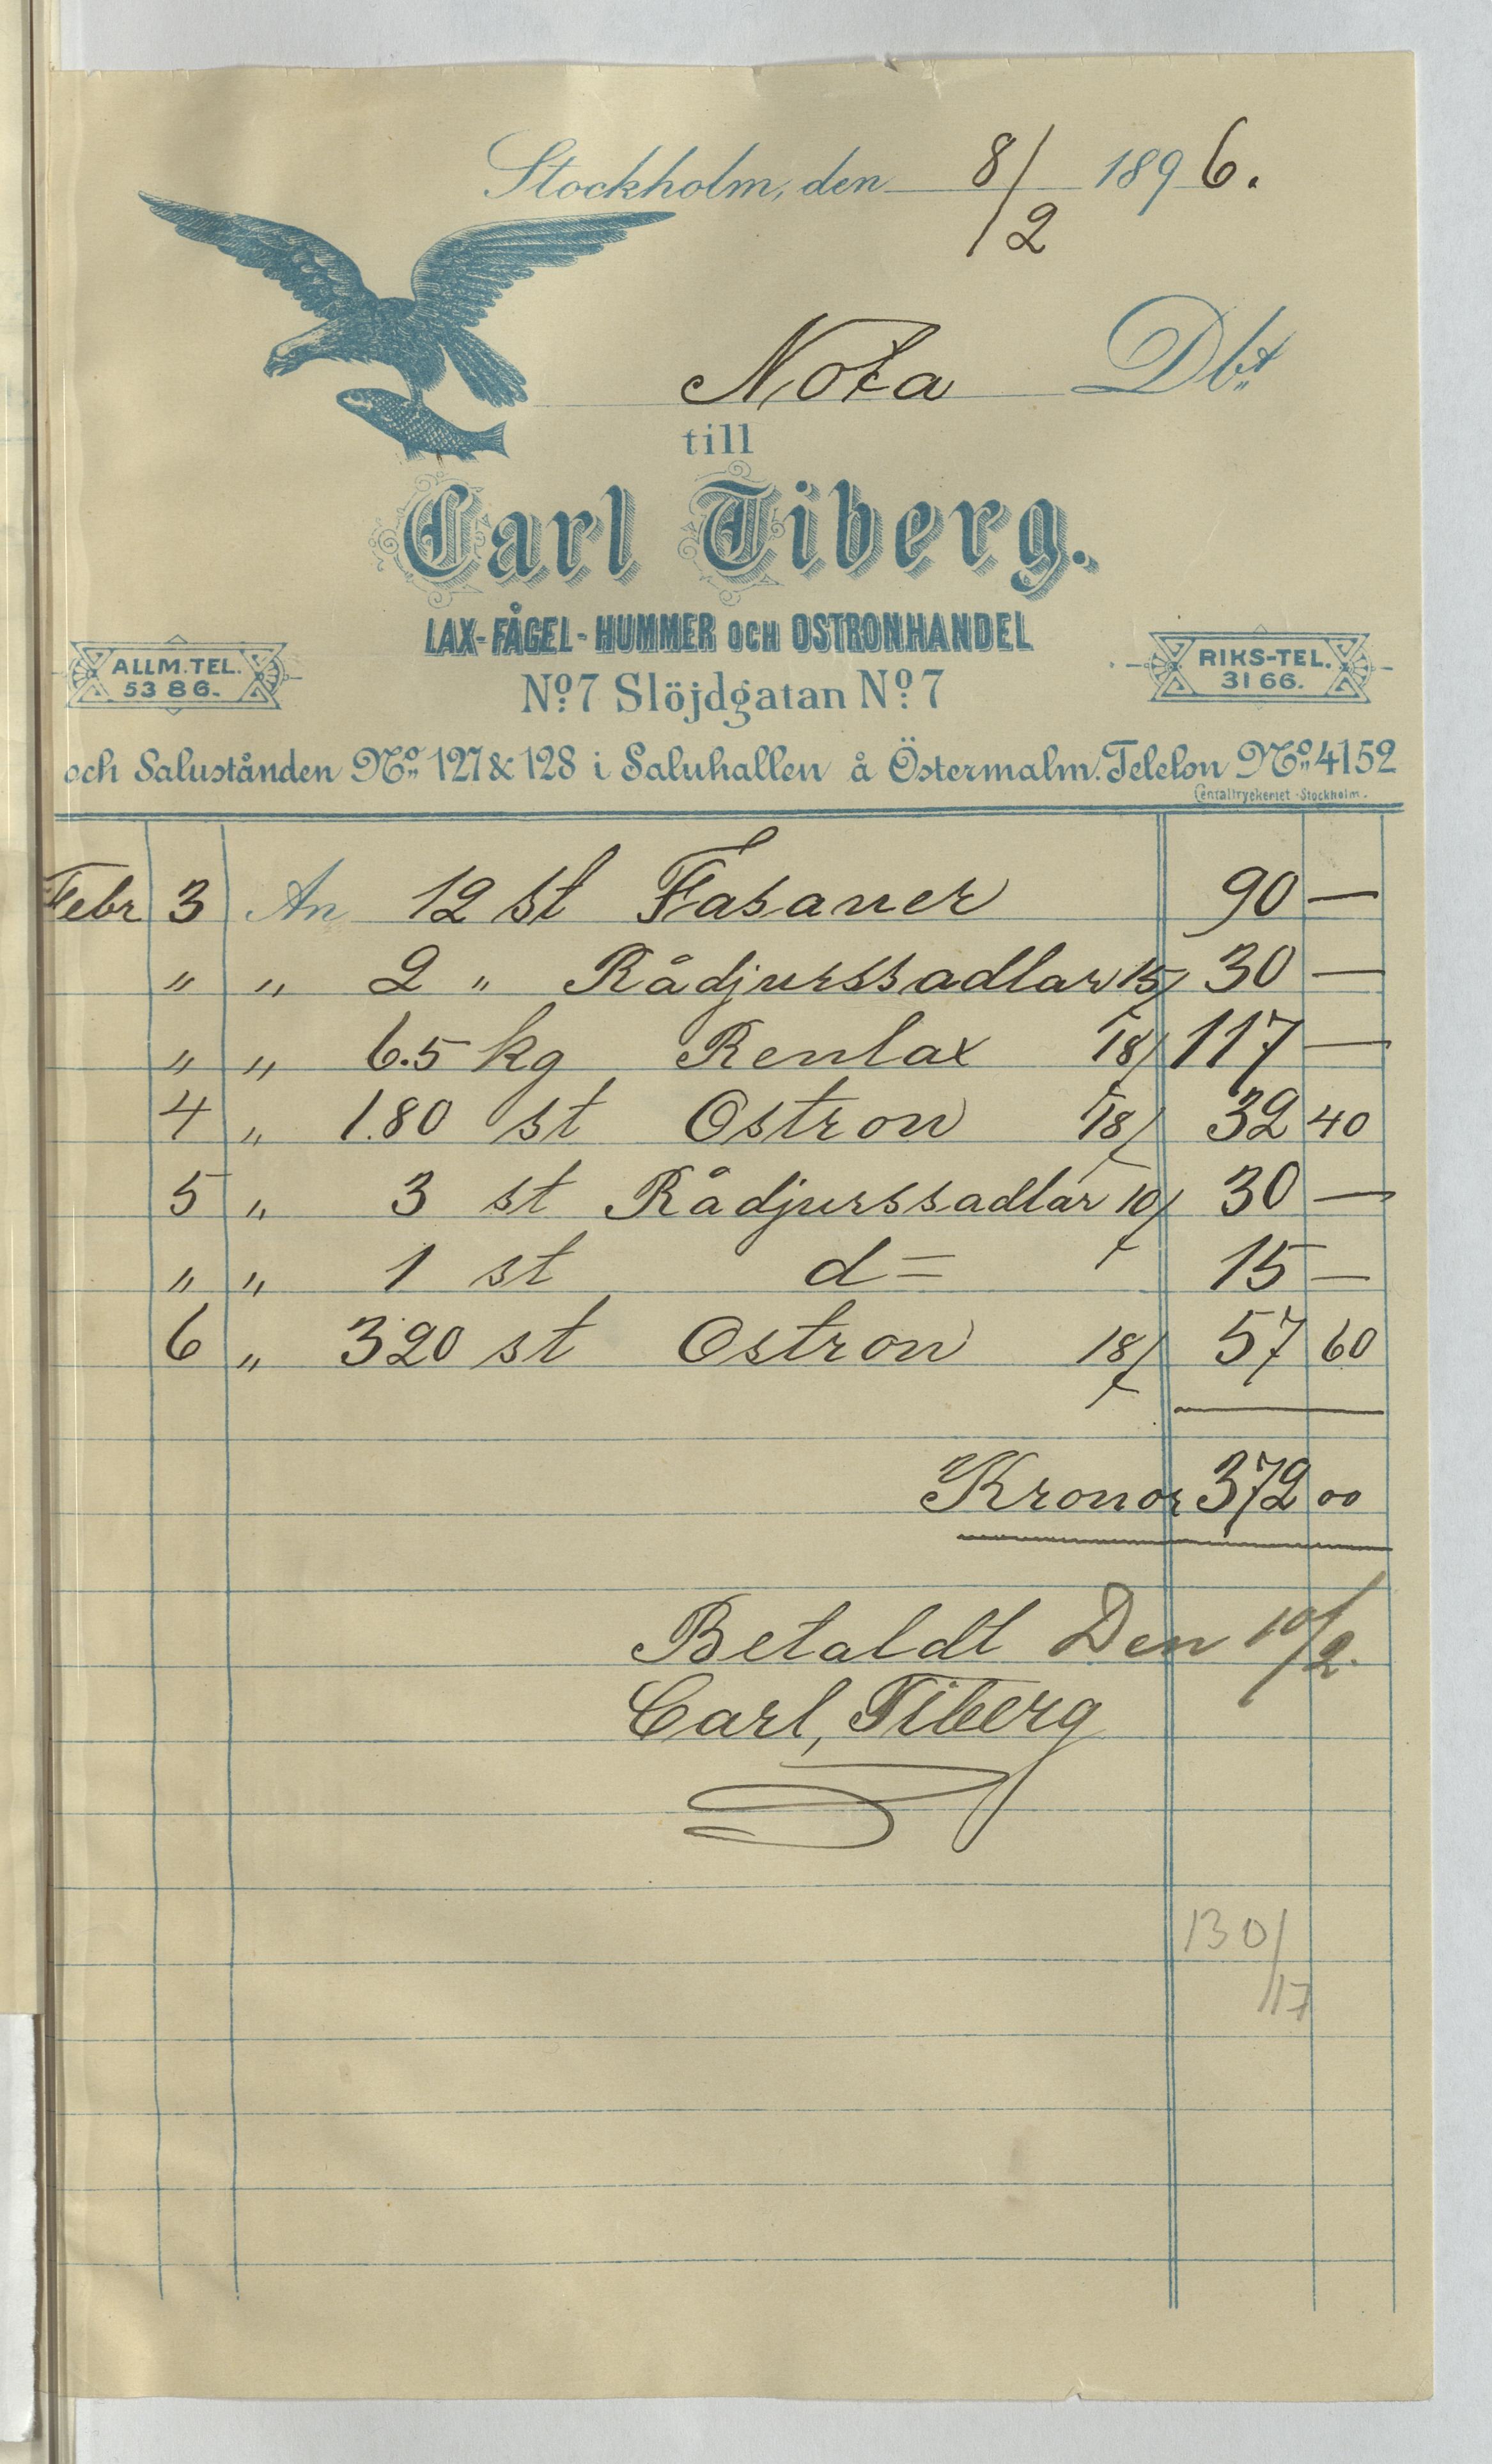 Stockholm, den 8/2 1896.
Nota Dbt
till
Carl Tiberg.
LAX-FÅGEL-HUMMER OCH OSTRONHANDEL
ALLM. TEL. 5386.
No. 7 Slöjdgatan No. 7
RIKS-TEL. 3166.
och Saluständen No. 127 & 128 i Saluhallen å Östermalm. Telefon No. 4152
Centraltryckeriet - Stockholm.
Febr 3 An 12 st Fasaner 90 —
„ „ 2 „ Rådjurssadlar 15/ 30 —
„ „ 6.5 kg Renlax 18/ 117 —
4 „ 1.80 st Ostron 18/ 32 40
5 „ 3 st Rådjurssadlar 10/ 30 —
„ „ 1 st d= 15 —
6 „ 320 st Ostron 18/ 57 60
Kronor 372 00
Betaldt Den 10/2.
Carl, Tiberg
130/17